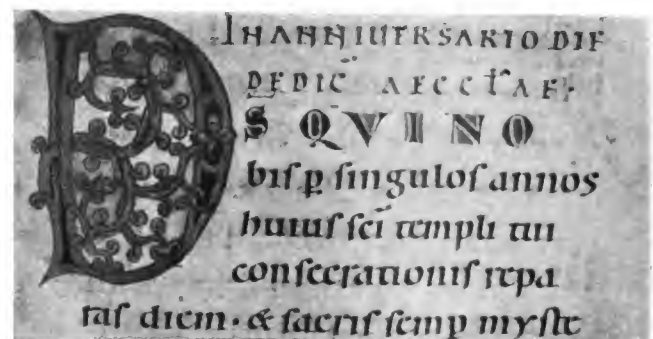 IN ANNIVERSARIO DIE
DEDIC̄ AECCL̄AE·
DS QVI NO
bis p̲ singulos annos
huius sc̄i templi tui
consecrationis repa
ras diem· & sacris semp̲ myste